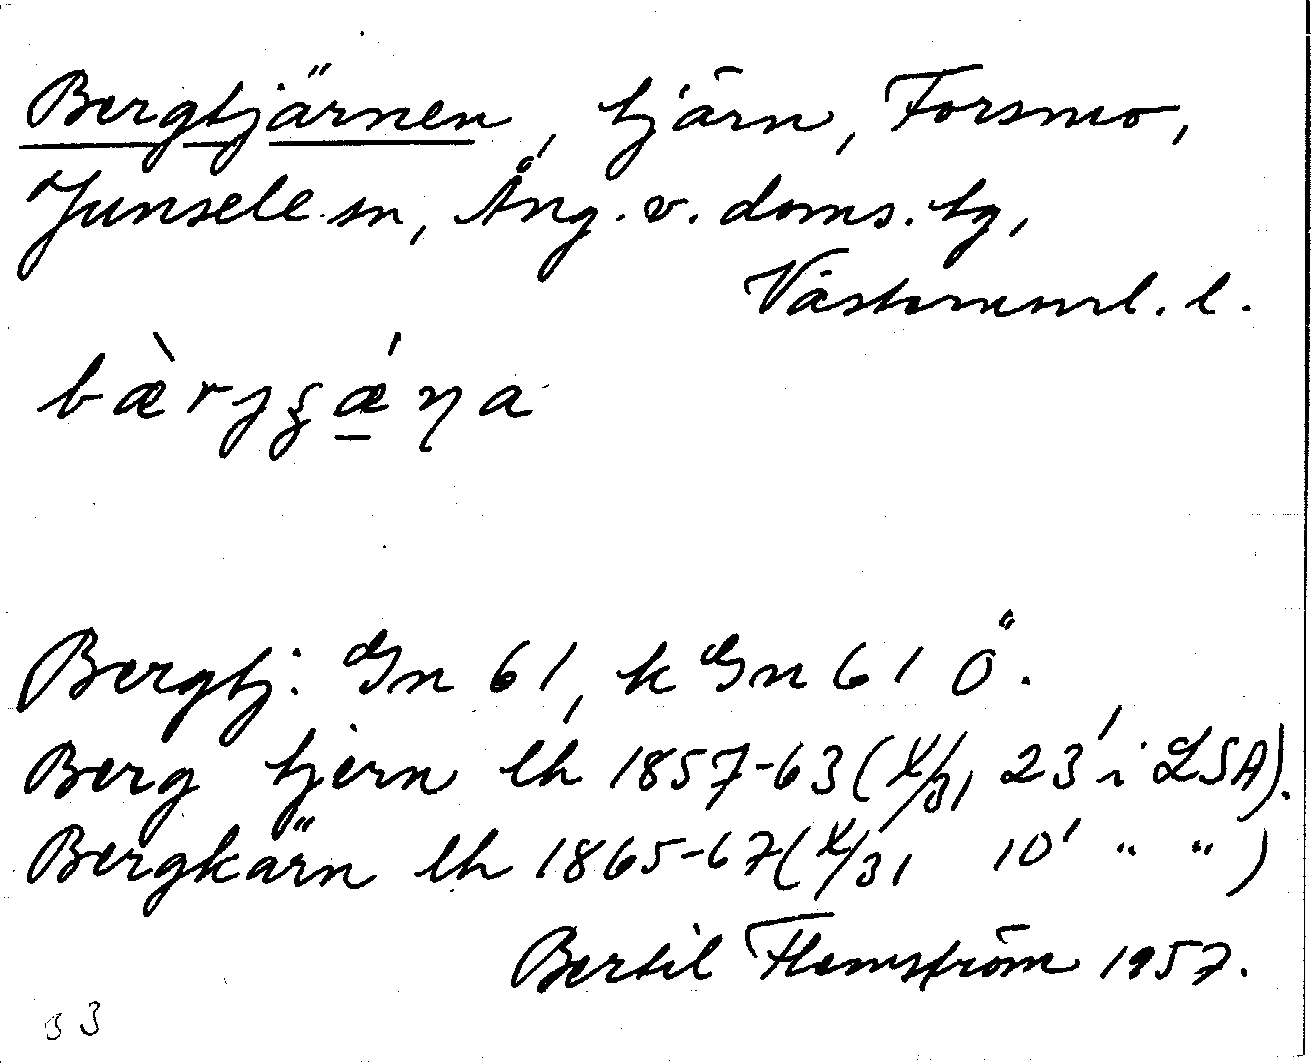 Bergtjärnen, tjärn, Forsmo,
Junsele sn, Ång. v. doms. tg,
Västernorrl. l.
bæ̀rjʂǽ̠ɳa
Bergtj. Gn 61, k Gn 61 Ö.
Berg tjern lh 1857-63 (X/31, 23' i LSA).
Bergkärn lh 1865-67 (X/31 10' " ")
Bertil Flemström 1957.
33